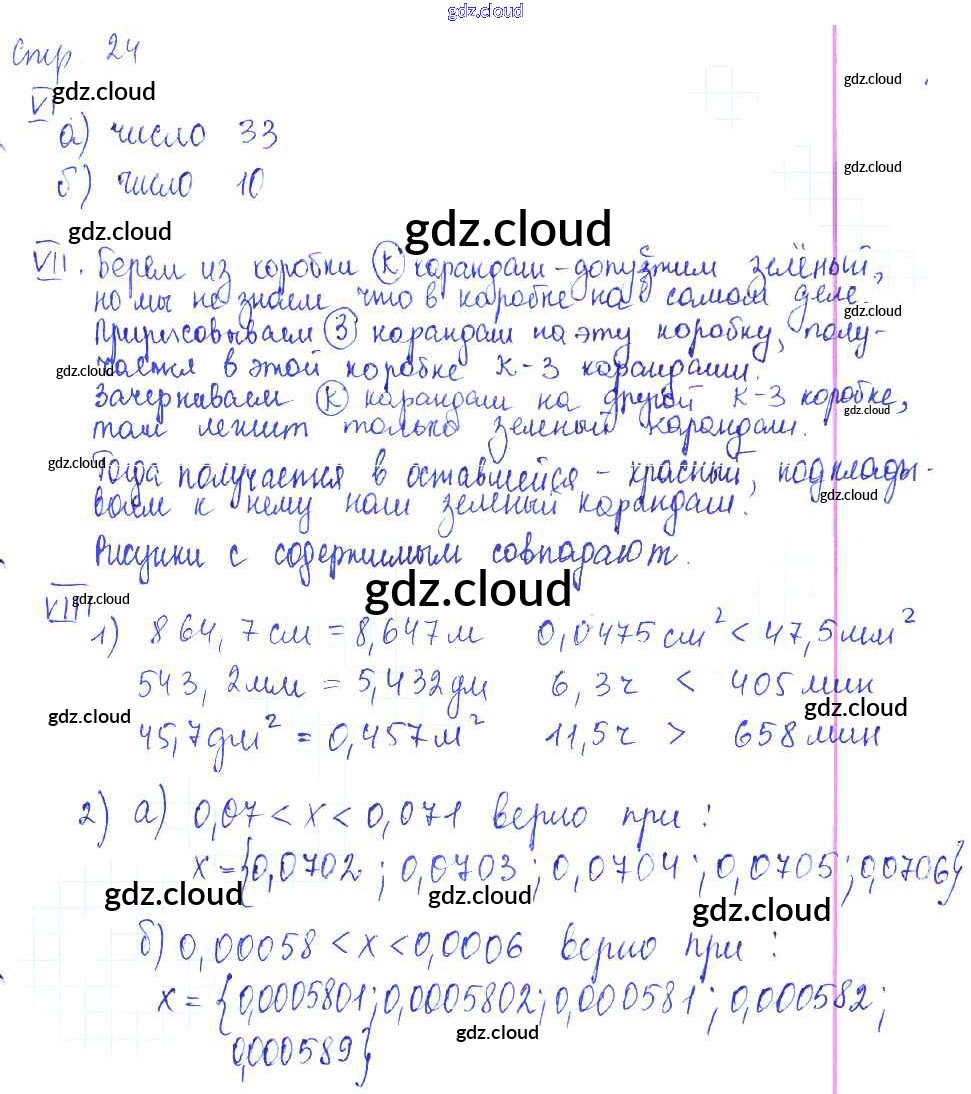 gdz.cloud
Стр 24
gdz.cloud
gdz.cloud
VI
а) число 33
б) число 10
gdz.cloud
gdz.cloud
gdz.cloud
VII. Берем из коробки К карандаш - допустим зелёный,
но мы не знаем что в коробке на самом деле.
gdz.cloud
Пририсовываем З карандаш на эту коробку, полу-
чается в этой коробке К-З карандаши.
gdz.cloud
Зачеркиваем К карандаш на другой К-З коробке,
gdz.cloud
там лежит только зеленый карандаш.
gdz.cloud
Тогда получается в оставшейся - красный, подклады-
gdz.cloud
ваем к нему наш зеленый карандаш.
Рисунки с содержимым совпадают.
gdz.cloud
gdz.cloud
VIII
1) 864,7см = 8,647м 0,0475см² < 47,5мм²
543,2мм = 5,432дм 6,3ч < 405мин
gdz.cloud
gdz.cloud
45,7дм² = 0,457м² 11,5ч > 658мин
2) а) 0,07 < x < 0,071 верно при:
x = {0,0702; 0,0703; 0,0704; 0,0705; 0,0706}
gdz.cloud
gdz.cloud
gdz.cloud
б) 0,00058 < x < 0,0006 верно при:
x = {0,0005801; 0,0005802; 0,000581; 0,000582;
gdz.cloud
0,000589}